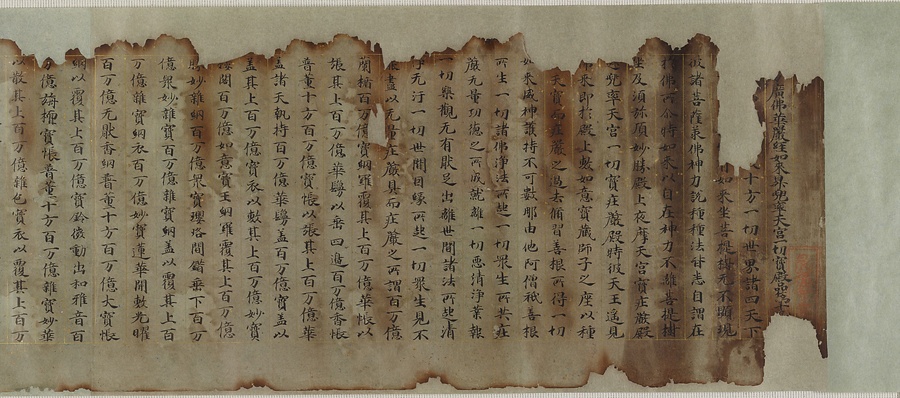 廣佛華嚴經如來昇兜率天宮一切寶殿品第
十方一切世界諸四天下
如來坐菩提樹无不顯現
故諸菩薩業佛神力說種種法皆悉自謂在
佛所今時如來以自在神力不離菩提樹
坐及須弥頂妙勝殿上夜摩天宮寶莊嚴殿
之兜率天宮一切寶莊嚴殿時彼天王遙見
來即於殿上敷如意寶藏師子之座以種
天寶而莊嚴之過去脩習善根所得一切
如來威神護持不可數那由他阿僧祇善根
所生一切諸佛淨法所起一切眾生所共莊
嚴无量功德之所成就離一切惡清淨業報
一切樂觀无有猒足出離世間諸法所起清
淨无汙一切世間因緣所起一切眾生見不
盡以无量莊嚴具而莊嚴之所謂百万億
蘭楯百万億寶網羅覆其上百万億華帳以
張其上百万億華鬘以垂四邊百万億香帳
普薰十方百万億寶帳以張其上百万億華
蓋諸天執持百万億華鬘蓋百万億寶蓋以
蓋其上百万億寶衣以敷其上百万億妙寶
樓閣百万億如意寶王網羅覆其上百万億
妙雜網百万億眾寶瓔珞間錯垂下百万
億眾妙雜寶百万億雜寶網蓋以覆其上百
万億雜寶納衣百万億妙寶蓮華開敷光曜
百万億无猒香網普薰十方百万億大寶帳
網以覆其上百万億寶鈴微動出和雅音百
万億旃檀寶帳普薰十方百万億雜寶妙華
以散其上百万億雜色寶衣以覆其上百万